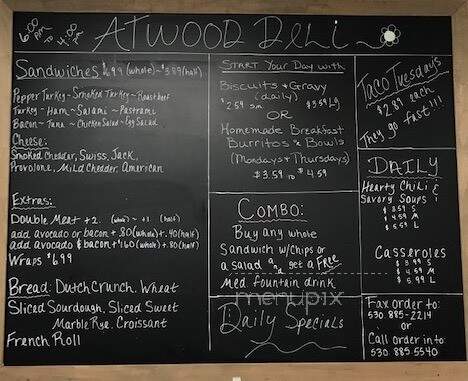 6:00 AM TO 4:00 PM
ATWOOD Deli
Sandwiches $6.99 (whole) ~ $3.89 (half)
Pepper Turkey ~ Smoked Turkey ~ Roast beef
Turkey ~ Ham ~ Salami ~ Pastrami
Bacon ~ Tuna ~ Chicken Salad ~ Egg Salad
Cheese:
Smoked Cheddar, Swiss, Jack,
Provolone, Mild Cheddar, American
Extras:
Double Meat +2. (whole) ~ +1. (half)
add avocado or bacon + .80 (whole) + .40 (half)
add avocado & bacon + $1.60 (whole) + .80 (half)
Wraps $6.99
Bread: Dutch Crunch, Wheat
Sliced Sourdough, Sliced Sweet
Marble Rye, Croissant
French Roll
START Your Day with
Biscuits & Gravy
(daily)
$2.59 sm $3.59 Lg
OR
Homemade Breakfast
Burritos & Bowls
(Mondays & Thursdays)
$3.59 to $4.59
COMBO:
Buy any whole
Sandwich w/Chips or
a salad and get a FREE
med fountain drink
menupix
Daily Specials
Taco Tuesdays
$2.89 each
They go fast!!!
DAILY
Hearty Chili &
Savory Soups :
$ 3.59 S
$ 4.59 M
$ 5.59 L
Casseroles
$ 3.99 S
$ 4.99 M
$ 5.99 L
Fax order to:
530.885-2214
or
Call order in to:
530 885 5540